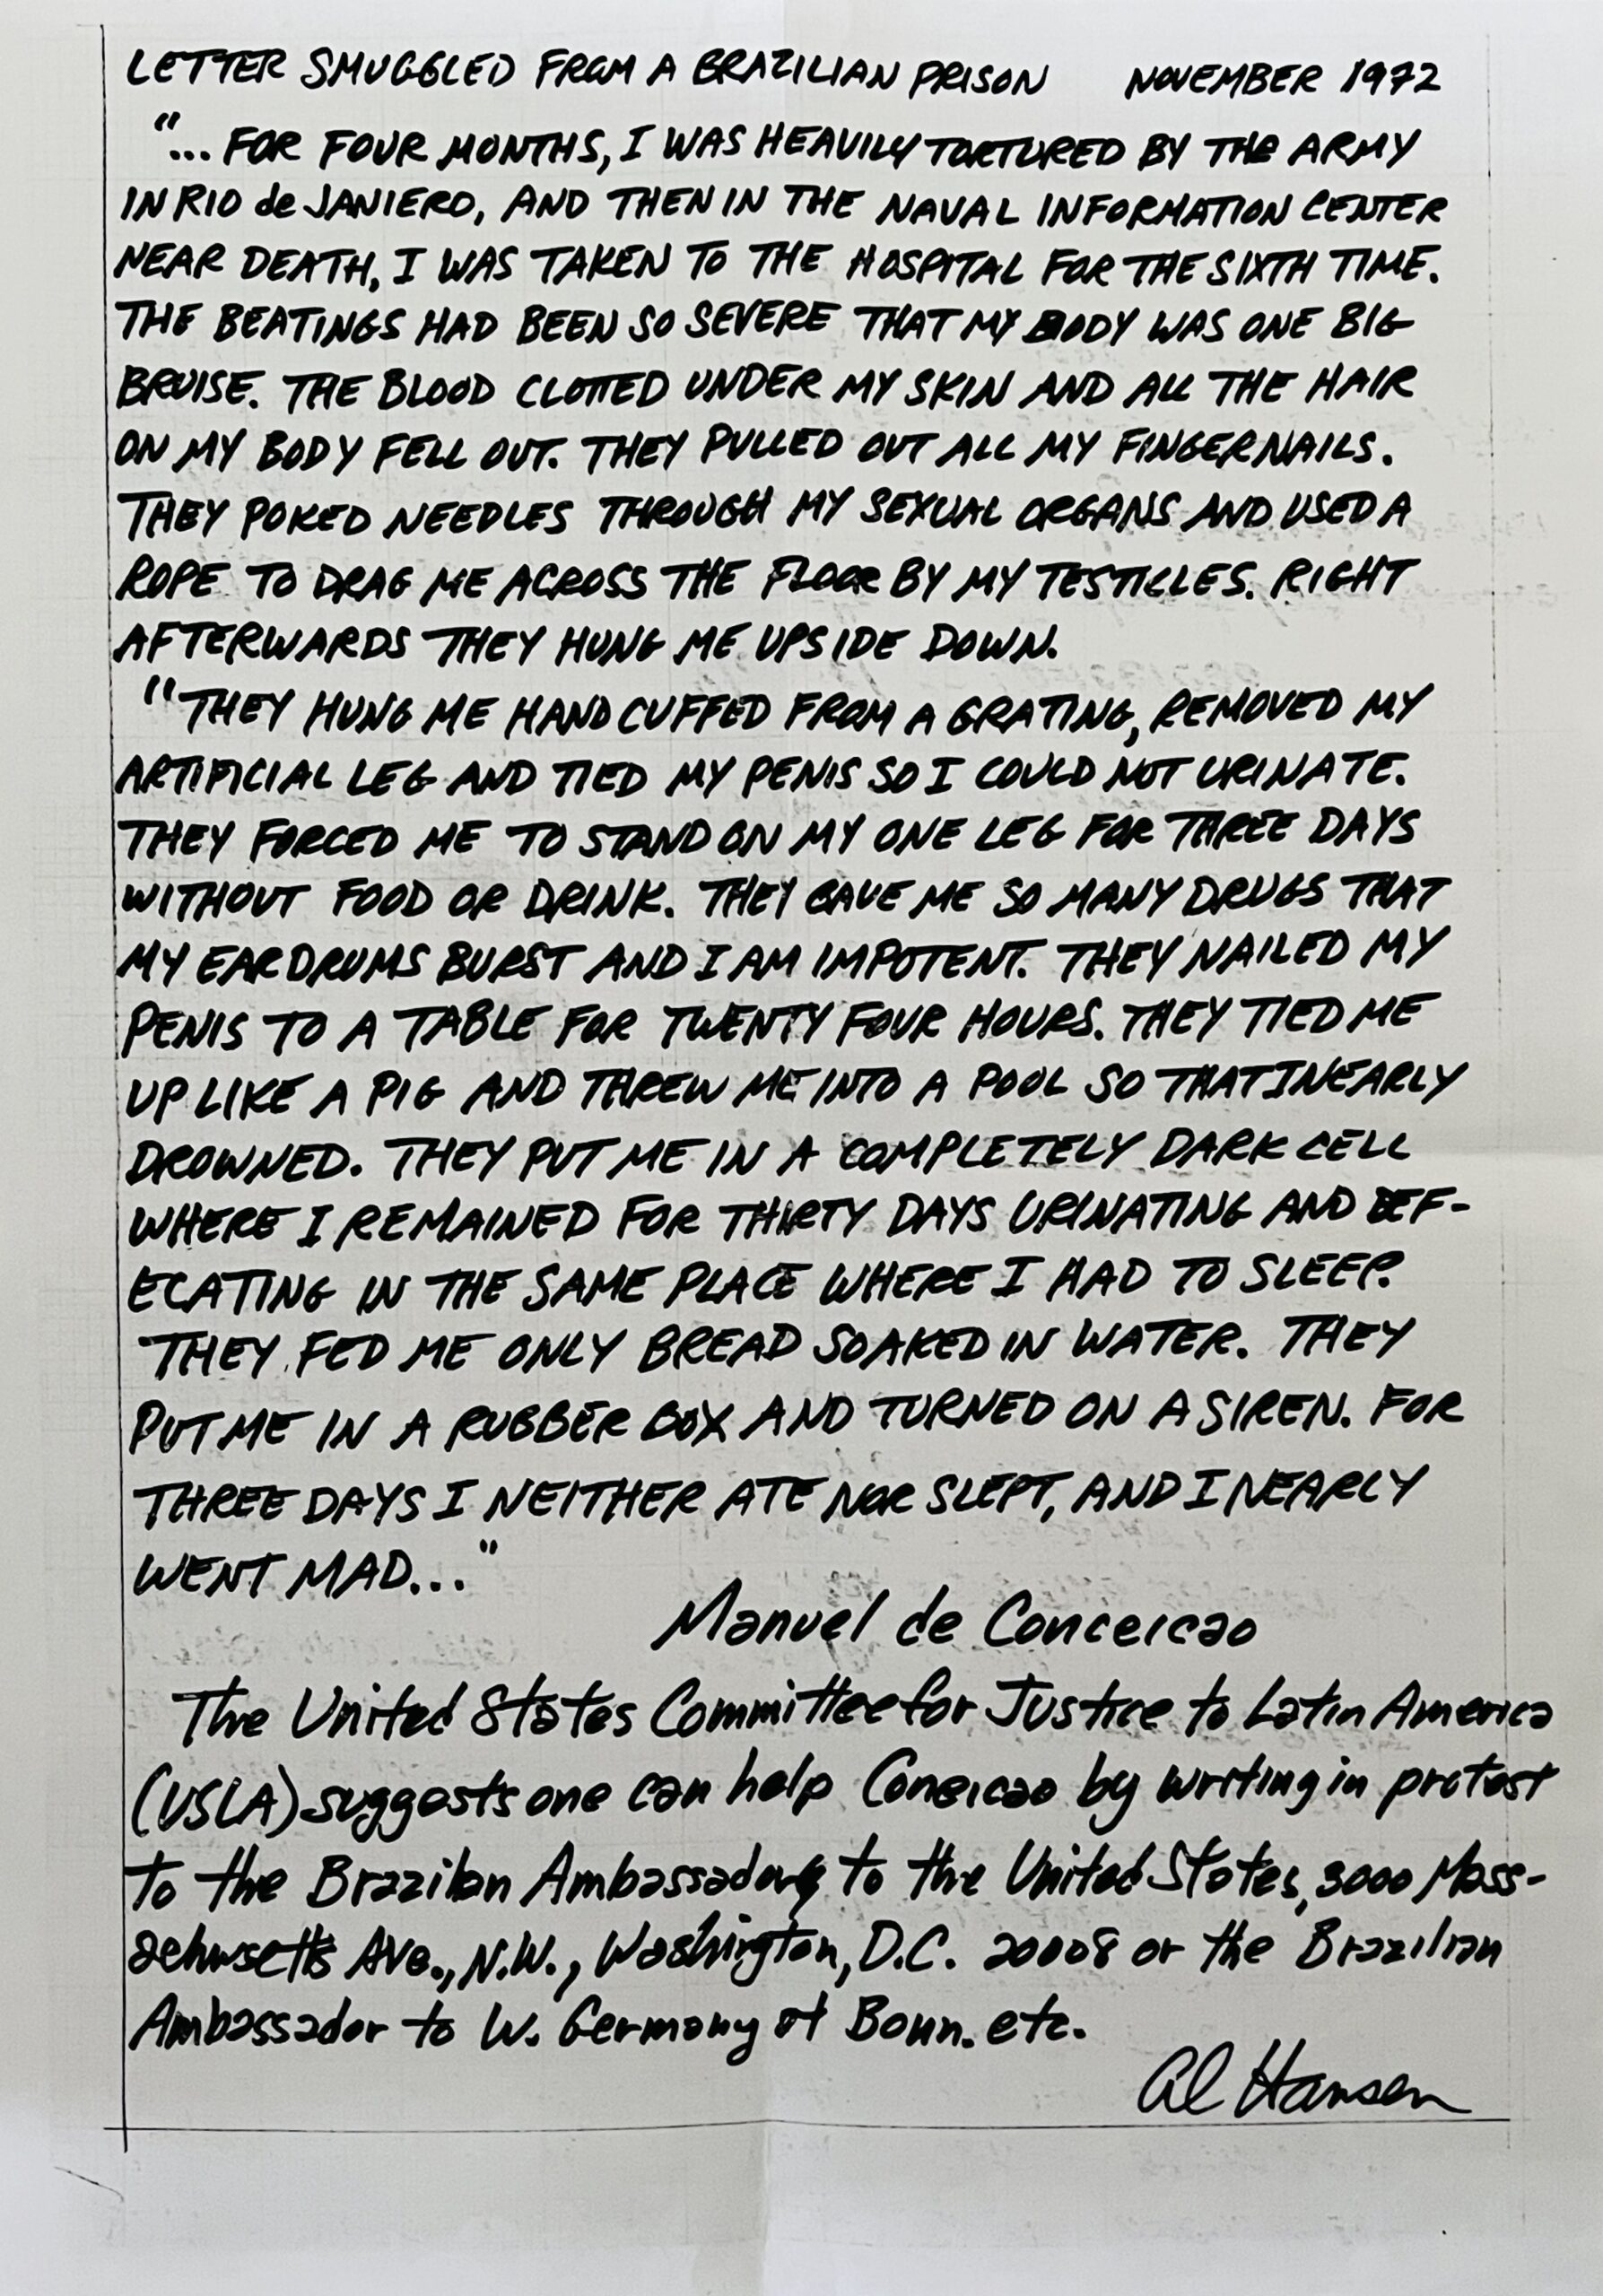 LETTER SMUGGLED FROM A BRAZILIAN PRISON NOVEMBER 1972
"... FOR FOUR MONTHS, I WAS HEAVILY TORTURED BY THE ARMY
IN RIO de JANIERO, AND THEN IN THE NAVAL INFORMATION CENTER
NEAR DEATH, I WAS TAKEN TO THE HOSPITAL FOR THE SIXTH TIME.
THE BEATINGS HAD BEEN SO SEVERE THAT MY BODY WAS ONE BIG
BRUISE. THE BLOOD CLOTTED UNDER MY SKIN AND ALL THE HAIR
ON MY BODY FELL OUT. THEY PULLED OUT ALL MY FINGERNAILS.
THEY POKED NEEDLES THROUGH MY SEXUAL ORGANS AND USED A
ROPE TO DRAG ME ACROSS THE FLOOR BY MY TESTICLES. RIGHT
AFTERWARDS THEY HUNG ME UPSIDE DOWN.
"THEY HUNG ME HANDCUFFED FROM A GRATING, REMOVED MY
ARTIFICIAL LEG AND TIED MY PENIS SO I COULD NOT URINATE.
THEY FORCED ME TO STAND ON MY ONE LEG FOR THREE DAYS
WITHOUT FOOD OR DRINK. THEY GAVE ME SO MANY DRUGS THAT
MY EARDRUMS BURST AND I AM IMPOTENT. THEY NAILED MY
PENIS TO A TABLE FOR TWENTY FOUR HOURS. THEY TIED ME
UP LIKE A PIG AND THREW ME INTO A POOL SO THAT I NEARLY
DROWNED. THEY PUT ME IN A COMPLETELY DARK CELL
WHERE I REMAINED FOR THIRTY DAYS URINATING AND DEF-
ECATING IN THE SAME PLACE WHERE I HAD TO SLEEP.
THEY FED ME ONLY BREAD SOAKED IN WATER. THEY
PUT ME IN A RUBBER BOX AND TURNED ON A SIREN. FOR
THREE DAYS I NEITHER ATE NOR SLEPT, AND I NEARLY
WENT MAD..."
Manuel de Conceicao
The United States Committee for Justice to Latin America
(USLA) suggests one can help Coneicao by writing in protest
to the Brazilan Ambassador to the United States, 3000 Mass-
achusetts Ave., N.W., Washington, D.C. 20008 or the Brazilian
Ambassador to W. Germany at Bonn. etc.
Al Hansen